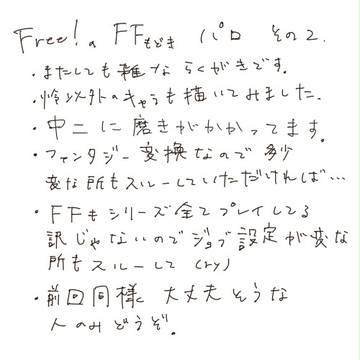 Free!の FFもどき パロ その2.
・またしても雑な らくがきです。
・怜以外のキャラも描いてみました。
・中二に磨きがかかってます。
・ファンタジー変換なので多少
変な所もスルーしていただければ…
・FFもシリーズ全てプレイしてる
訳じゃないのでジョブ設定が変な
所もスルーして(ry)
・前回同様 大丈夫そうな
人のみどうぞ。